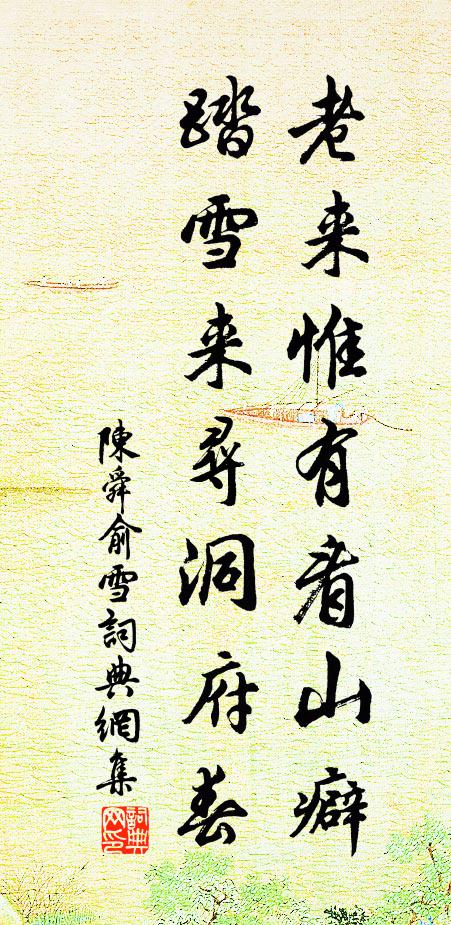 老来惟有看山癖
踏雪来尋洞府春
陳舜俞雪詞典網集
詞典網印